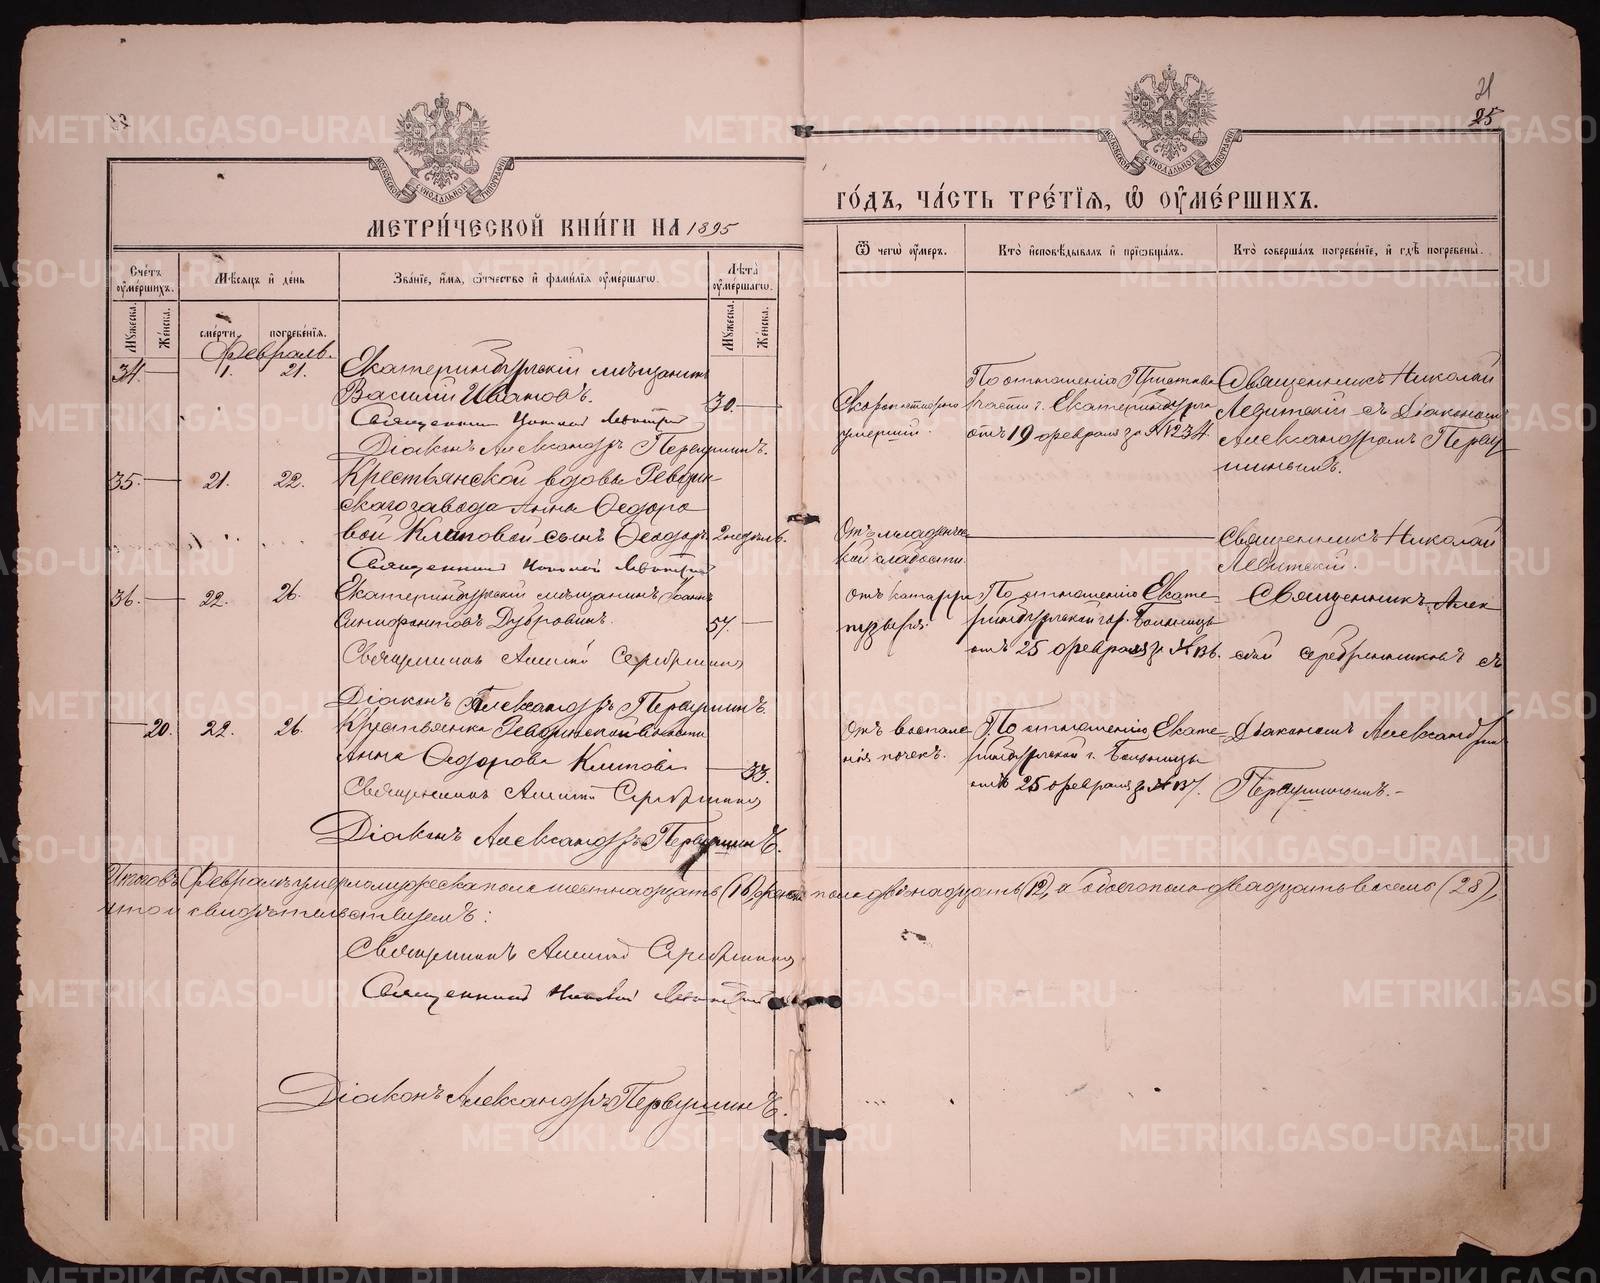 21
25
МЕТРИ́ЧЕСКОЙ КНИ́ГИ НА 1895
ГО́ДЪ, ЧА́СТЬ ТРЕ́ТІѦ, Ѡ҆ ОУ҆МЕ́РШИХЪ.
Сче́тъ оу҆ме́ршихъ.
Мꙋ́жеска.
Же́нска.
Мѣ́сѧцъ и҆ де́нь
сме́рти.
погребе́нїѧ.
Зва́нїе, и҆́мѧ, ѻ҆́тчество и҆ фами́лїѧ оу҆ме́ршагѡ.
Лѣ́та оу҆ме́ршагѡ.
Мꙋ́жеска.
Же́нска.
Ѿ чегѡ̀ оу҆́меръ.
Кто̀ и҆сповѣ́дывалъ и҆ прїѡбща́лъ.
Кто̀ соверша́лъ погребе́нїе, и҆ гдѣ̀ погребены̀.
Февраль.
34. — 1. 21. Екатеринбургскій мѣщанинъ
Василій Ивановъ. 30. —
Священникъ Николай Левитскій
Діаконъ Александръ Первушинъ.
Скоропостижно
умершій.
По отношенію Пристава
части г. Екатеринбурга
отъ 19 февраля за № 1234.
Священникъ Николай
Левитскій съ Діакономъ
Александромъ Перву
шинымъ.
35. — 21. 22. Крестьянской вдовы Ревдин
скаго завода Анны Ѳедоро
вой Климовой сынъ Ѳеодоръ 2 недѣль.
Священникъ Николай Левитскій
Отъ младенчес
кой слабости.
Священникъ Николай
Левитскій.
36. — 22. 26. Екатеринбургскій мѣщанинъ Іоаннъ
Дубровинъ. 57. —
Священникъ Алексій Серебренниковъ
Діаконъ Александръ Первушинъ.
Отъ катарра
пузыря.
По отношенію Екате-
ринбургской гор. Больницы
отъ 25 февраля за № 136.
Священникъ Алек
сѣй Серебренниковъ съ
— 20. 22. 26. Крестьянка Ревдинской волости
Анна Ѳедорова Климова — 33.
Священникъ Алексій Серебренниковъ
Діаконъ Александръ Первушинъ.
Отъ воспале
нія почекъ.
По отношенію Екате-
ринбургской г. Больницы
отъ 25 февраля за № 137.
Діакономъ Александромъ
Первушинымъ.-
Итого въ Февралѣ умерло мужеска пола шестнадцать (16), женска пола двѣнадцать (12), а обоего пола двадцать восемь (28),
что и свидѣтельствуемъ:
Священникъ Алексій Серебренниковъ
Священникъ Николай Левитскій
Діаконъ Александръ Первушинъ.
METRIKI.GASO-URAL.RU